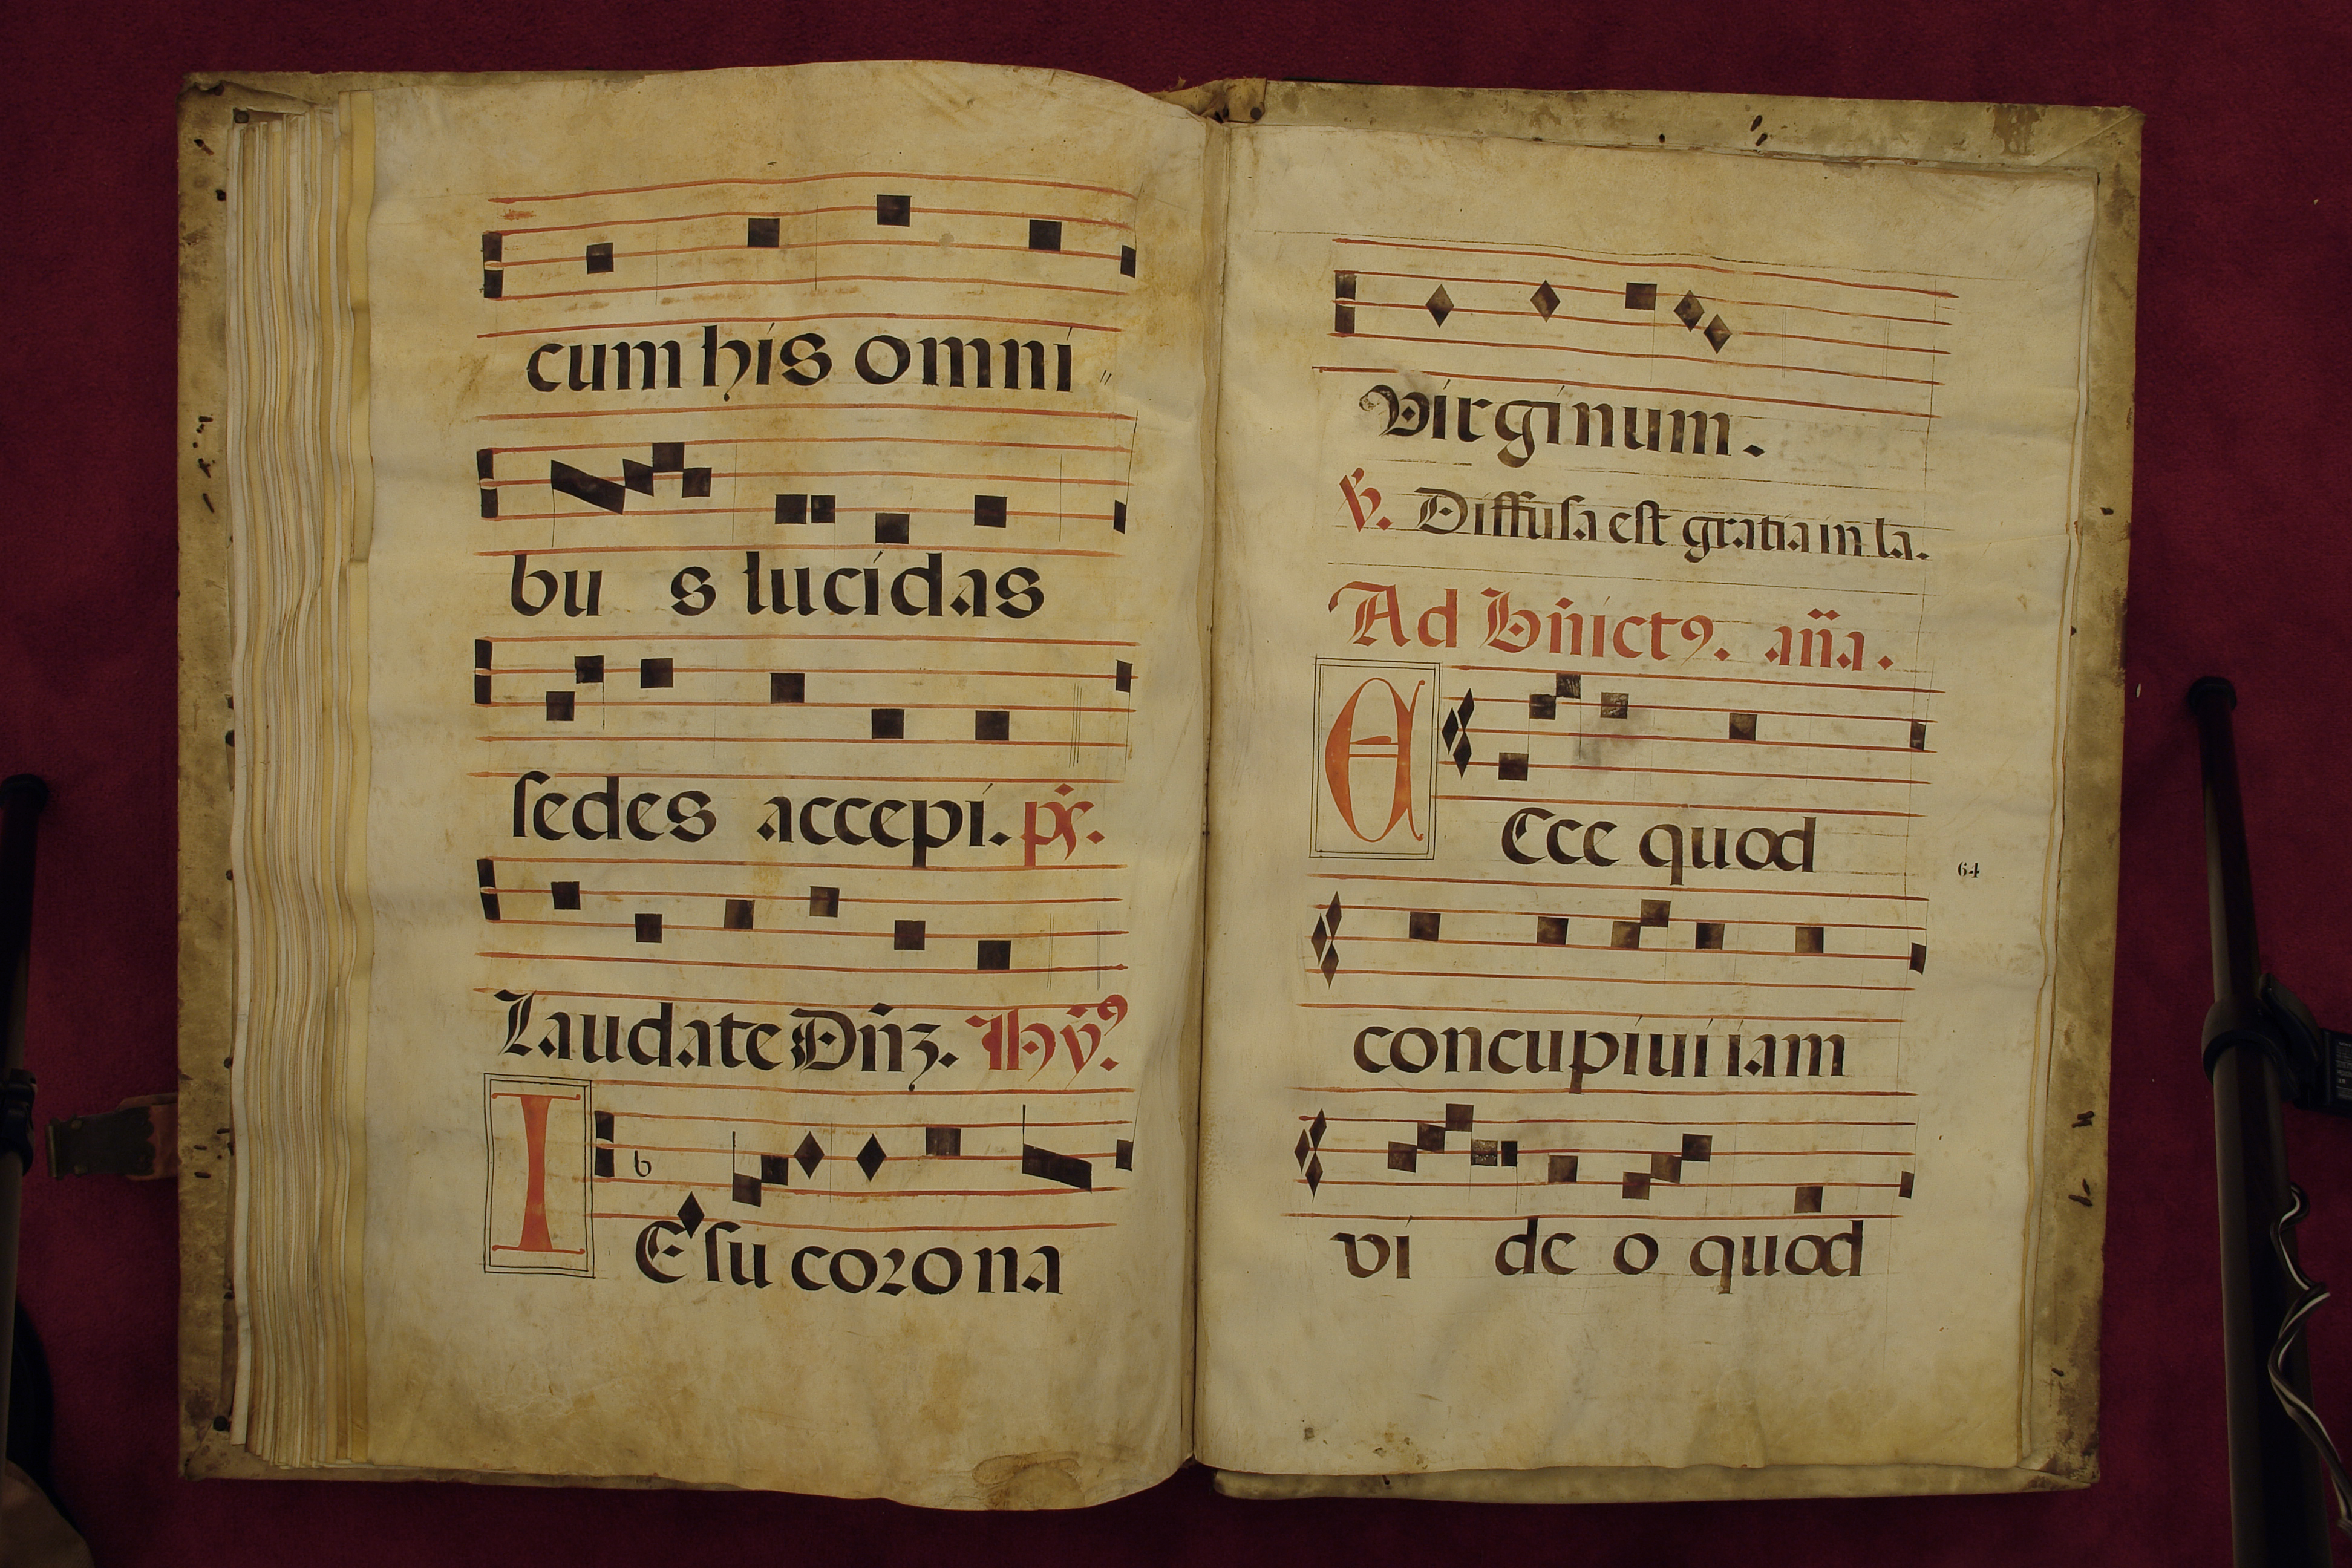 cum his omni
bu s lucidas
sedes accepi. ps.
Laudate Dñȝ. Hỹ⁹.
I Esu corona
Virginum.
℣. Diffusa est gratia in la.
Ad Bñict⁹. aña.
E Cce quod
64
concupiui iam
vi de o quod